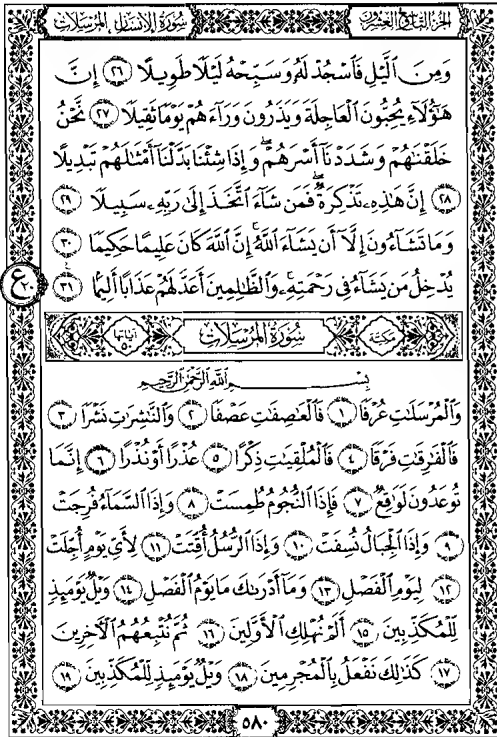 الجزء التاسع والعشرون سورة الإنسان المرسلات
وَمِنَ ٱلَّيۡلِ فَٱسۡجُدۡ لَهُۥ وَسَبِّحۡهُ لَيۡلٗا طَوِيلًا ٢٦ إِنَّ
هَٰٓؤُلَآءِ يُحِبُّونَ ٱلۡعَاجِلَةَ وَيَذَرُونَ وَرَآءَهُمۡ يَوۡمٗا ثَقِيلٗا ٢٧ نَّحۡنُ
خَلَقۡنَٰهُمۡ وَشَدَدۡنَآ أَسۡرَهُمۡۖ وَإِذَا شِئۡنَا بَدَّلۡنَآ أَمۡثَٰلَهُمۡ تَبۡدِيلًا
٢٨ إِنَّ هَٰذِهِۦ تَذۡكِرَةٞۖ فَمَن شَآءَ ٱتَّخَذَ إِلَىٰ رَبِّهِۦ سَبِيلٗا ٢٩
وَمَا تَشَآءُونَ إِلَّآ أَن يَشَآءَ ٱللَّهُۚ إِنَّ ٱللَّهَ كَانَ عَلِيمًا حَكِيمٗا ٣٠
يُدۡخِلُ مَن يَشَآءُ فِي رَحۡمَتِهِۦۚ وَٱلظَّٰلِمِينَ أَعَدَّ لَهُمۡ عَذَابًا أَلِيمَۢا ٣١
ع ٢٠
مكية سورة المرسلات آياتها ٥٠
بِسۡمِ ٱللَّهِ ٱلرَّحۡمَٰنِ ٱلرَّحِيمِ
وَٱلۡمُرۡسَلَٰتِ عُرۡفٗا ١ فَٱلۡعَٰصِفَٰتِ عَصۡفٗا ٢ وَٱلنَّٰشِرَٰتِ نَشۡرٗا ٣
فَٱلۡفَٰرِقَٰتِ فَرۡقٗا ٤ فَٱلۡمُلۡقِيَٰتِ ذِكۡرًا ٥ عُذۡرًا أَوۡ نُذۡرًا ٦ إِنَّمَا
تُوعَدُونَ لَوَٰقِعٞ ٧ فَإِذَا ٱلنُّجُومُ طُمِسَتۡ ٨ وَإِذَا ٱلسَّمَآءُ فُرِجَتۡ
٩ وَإِذَا ٱلۡجِبَالُ نُسِفَتۡ ١٠ وَإِذَا ٱلرُّسُلُ أُقِّتَتۡ ١١ لِأَيِّ يَوۡمٍ أُجِّلَتۡ
١٢ لِيَوۡمِ ٱلۡفَصۡلِ ١٣ وَمَآ أَدۡرَىٰكَ مَا يَوۡمُ ٱلۡفَصۡلِ ١٤ وَيۡلٞ يَوۡمَئِذٖ
لِّلۡمُكَذِّبِينَ ١٥ أَلَمۡ نُهۡلِكِ ٱلۡأَوَّلِينَ ١٦ ثُمَّ نُتۡبِعُهُمُ ٱلۡأٓخِرِينَ
١٧ كَذَٰلِكَ نَفۡعَلُ بِٱلۡمُجۡرِمِينَ ١٨ وَيۡلٞ يَوۡمَئِذٖ لِّلۡمُكَذِّبِينَ ١٩
٥٨٠